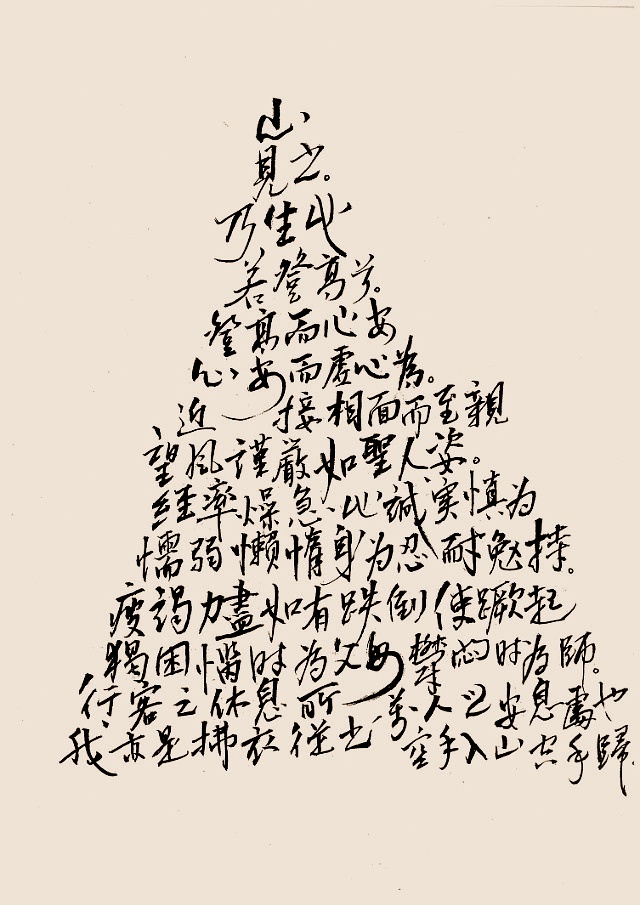 山
見之。
乃生心
若登高兮。
登高而心安
心安而虛心為。
近接相面而至親
望風謹嚴如聖人姿。
經率燥急心誠実慎為
懦弱懶惰身為忍耐勉持。
疲謁力盡如有跌倒使蹶起
獨困惱時為父母 悶时為師。
行客之休息所 萬人之安息處也
我亦是拂衣從之 空手入山空手歸.